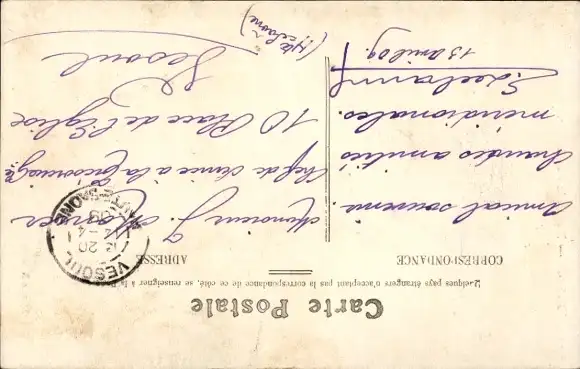 Carte Postale
Quelques pays étrangers n'acceptant pas la correspondance de ce côté, se renseigner à la Poste
CORRESPONDANCE
ADRESSE
Amical souvenir
chaudes amitiés
méridionales.
13 avril 09.
Monsieur J.
Chef de Service à la
10 Place de l'Église
Vesoul
(Hte Saône)
VESOUL
12 20
14 - 4
09
HTE-SAONE